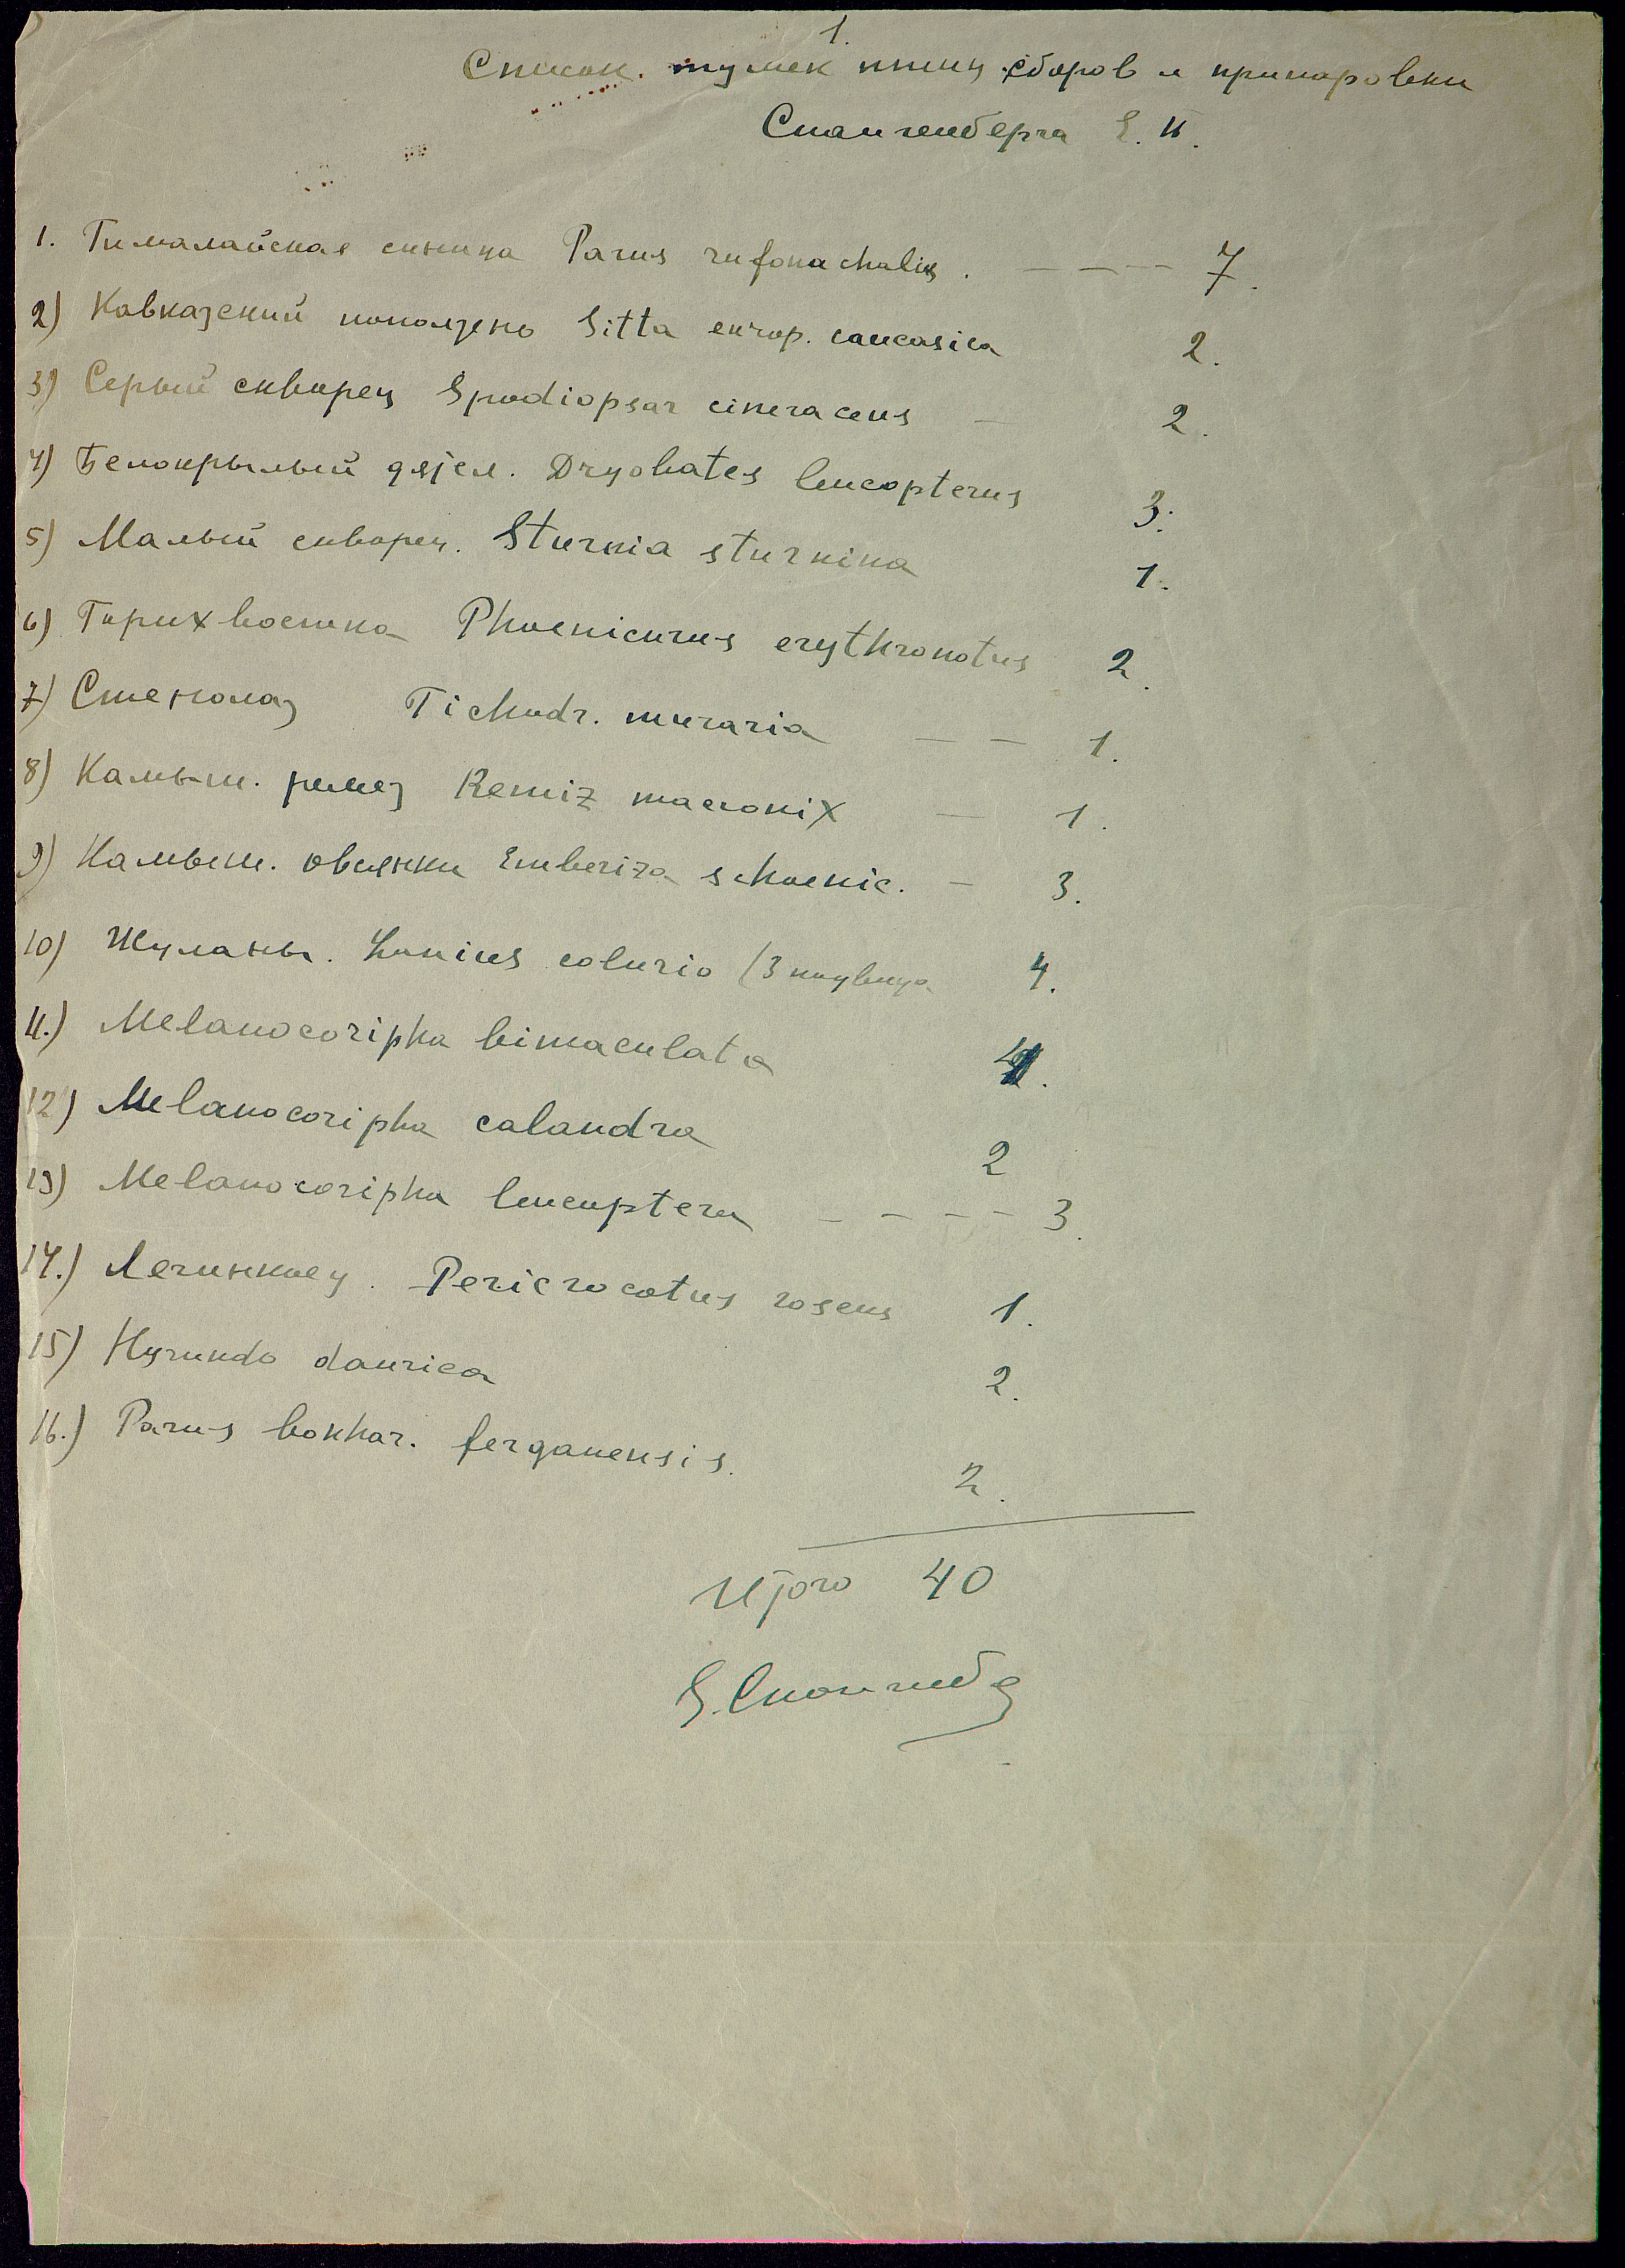 1.
Список. тушек птиц сборов и припаровки
Спангенберга Е. П.
1. Гималайская синица Parus rufonachalis. – – – – 7.
2) Кавказский поползень Sitta europ. caucasica 2.
3) Серый скворец Spodiopsar cineraceus – 2.
4) Белокрылый дятел. Dryobates leucopterus 3.
5) Малый скворец. Sturnia sturnina 1.
6) Горихвостка Phoenicurus erythronotus 2.
7) Стенолаз Tichodr. muraria – – 1.
8) Камыш. ремез Remiz macronix – 1.
9) Камыш. овсянки Emberiza schoenic. – 3.
10) Жуланы. Lanius colurio (3 4.
11.) Melanocoripha bimaculata
12) Melanocoripha calandra 2
13) Melanocoripha leucoptera – – – – 3.
14.) Личинкоед. Pericrocotus roseus 1.
15) Hyrundo daurica 2.
16.) Parus bokhar. ferganensis. 2.
Итого 40